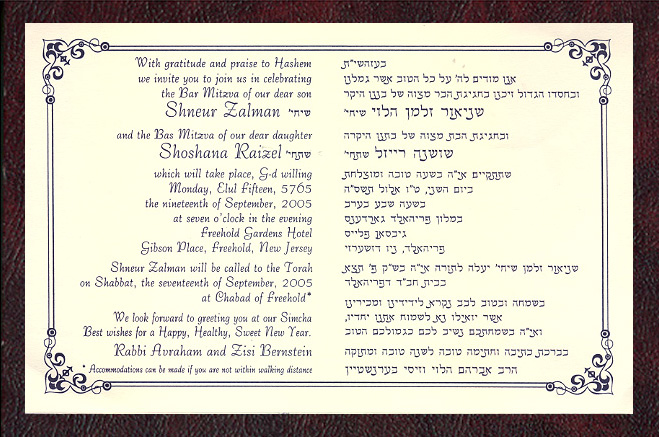 With gratitude and praise to Hashem
we invite you to join us in celebrating
the Bar Mitzva of our dear son
Shneur Zalman שיחי'
and the Bas Mitzva of our dear daughter
Shoshana Raizel שתחי'
which will take place, G-d willing
Monday, Elul Fifteen, 5765
the nineteenth of September, 2005
at seven o'clock in the evening
Freehold Gardens Hotel
Gibson Place, Freehold, New Jersey
Shneur Zalman will be called to the Torah
on Shabbat, the seventeenth of September, 2005
at Chabad of Freehold*
We look forward to greeting you at our Simcha
Best wishes for a Happy, Healthy, Sweet New Year.
Rabbi Avraham and Zisi Bernstein
* Accommodations can be made if you are not within walking distance
בעזהשי"ת
אנו מודים לה' על כל הטוב אשר גמלנו
ובחסדו הגדול זיכנו בחגיגת הבר מצוה של בננו היקר
שניאור זלמן הלוי שיחי'
ובחגיגת הבת מצוה של בתנו היקרה
שושנה רייזל שתחי'
שתתקיים אי"ה בשעה טובה ומוצלחת
ביום השני, ט"ו אלול תשס"ה
בשעה שבע בערב
במלון פריהאלד גארדענס
גיבסאן פלייס
פריהאלד, ניו דזשערזי
שניאור זלמן שיחי' יעלה לתורה אי"ה בש"ק פ' תצא
בבית חב"ד דפריהאלד
בשמחה ובטוב לבב נקרא לידידינו ומכירינו
אשר יואילו נא לשמוח אתנו יחדיו,
ואי"ה בשמחתכם נשיב לכם כגמולכם הטוב
בברכת כתיבה וחתימה טובה לשנה טובה ומתוקה
הרב אברהם הלוי וזיסי בערנשטיין